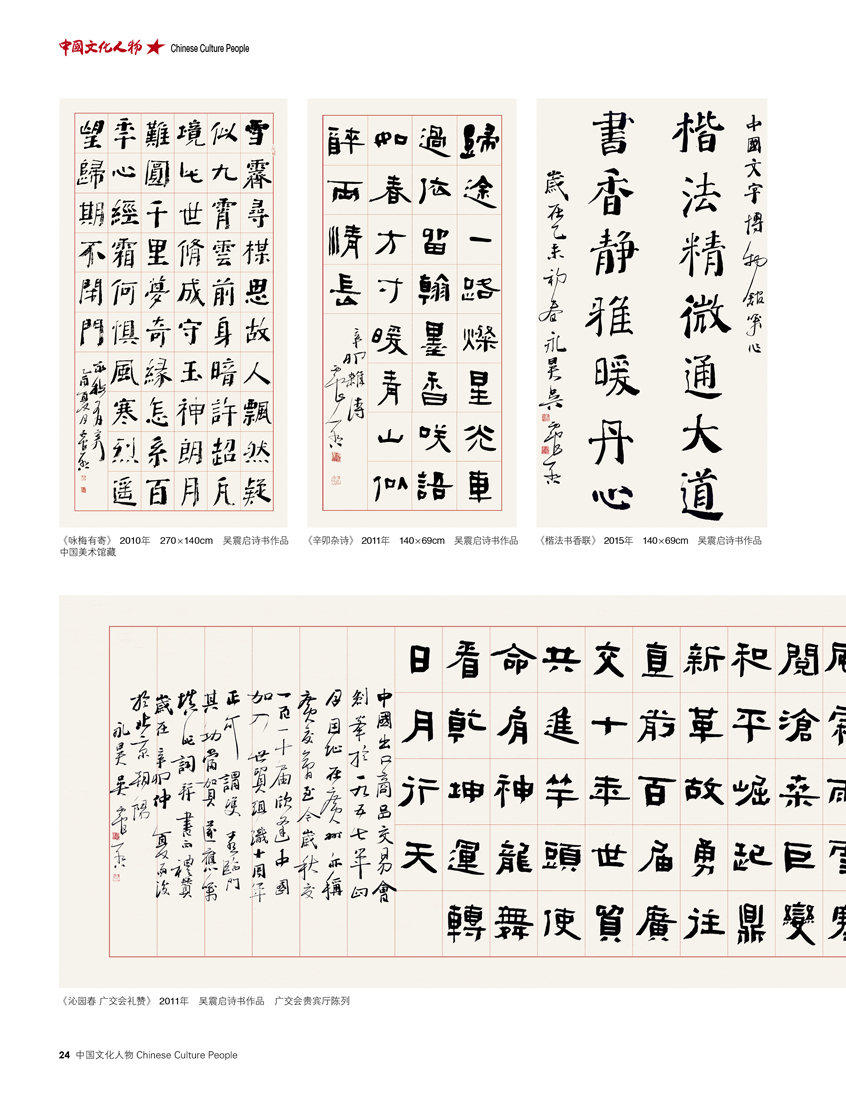 中國文化人物 Chinese Culture People
雪霽尋楳思故人飄然疑
似九霄雲前身暗許超凡
境此世脩成守玉神朗月
難圓千里夢奇緣怎系百
秊心經霜何懼風寒烈遥
望歸期不閉門
庚寅夏月震启
歸途一路燦星光車
過依留翰墨香咲語
如春方寸暖青山似
醉雨情長
辛卯雜詩
震启
中國文字博物館
楷法精微通大道
書香静雅暖丹心
歲在乙未初春永昊吴震启
《咏梅有寄》 2010年 270×140cm 吴震启诗书作品
中国美术馆藏
《辛卯杂诗》 2011年 140×69cm 吴震启诗书作品
《楷法书香联》 2015年 140×69cm 吴震启诗书作品
風霜雨雪寒
閱滄桑巨變
和平崛起鼎
新革故勇往
直前百届廣
交十年世貿
共進竿頭使
命肩神龍舞
看乾坤運轉
日月行天
中國出口商品交易會
創辦於一九五七年四
月因址在廣州亦稱
廣交會至今歲秋交
一百一十届欣逢中國
加入世貿組織十周年
正可謂雙喜臨門
其功當賀遂應
填此詞并書而禮贊
歲在辛卯仲夏雨後
於北京朝陽
永昊吴震启
《沁园春 广交会礼赞》 2011年 吴震启诗书作品 广交会贵宾厅陈列
24 中国文化人物 Chinese Culture People